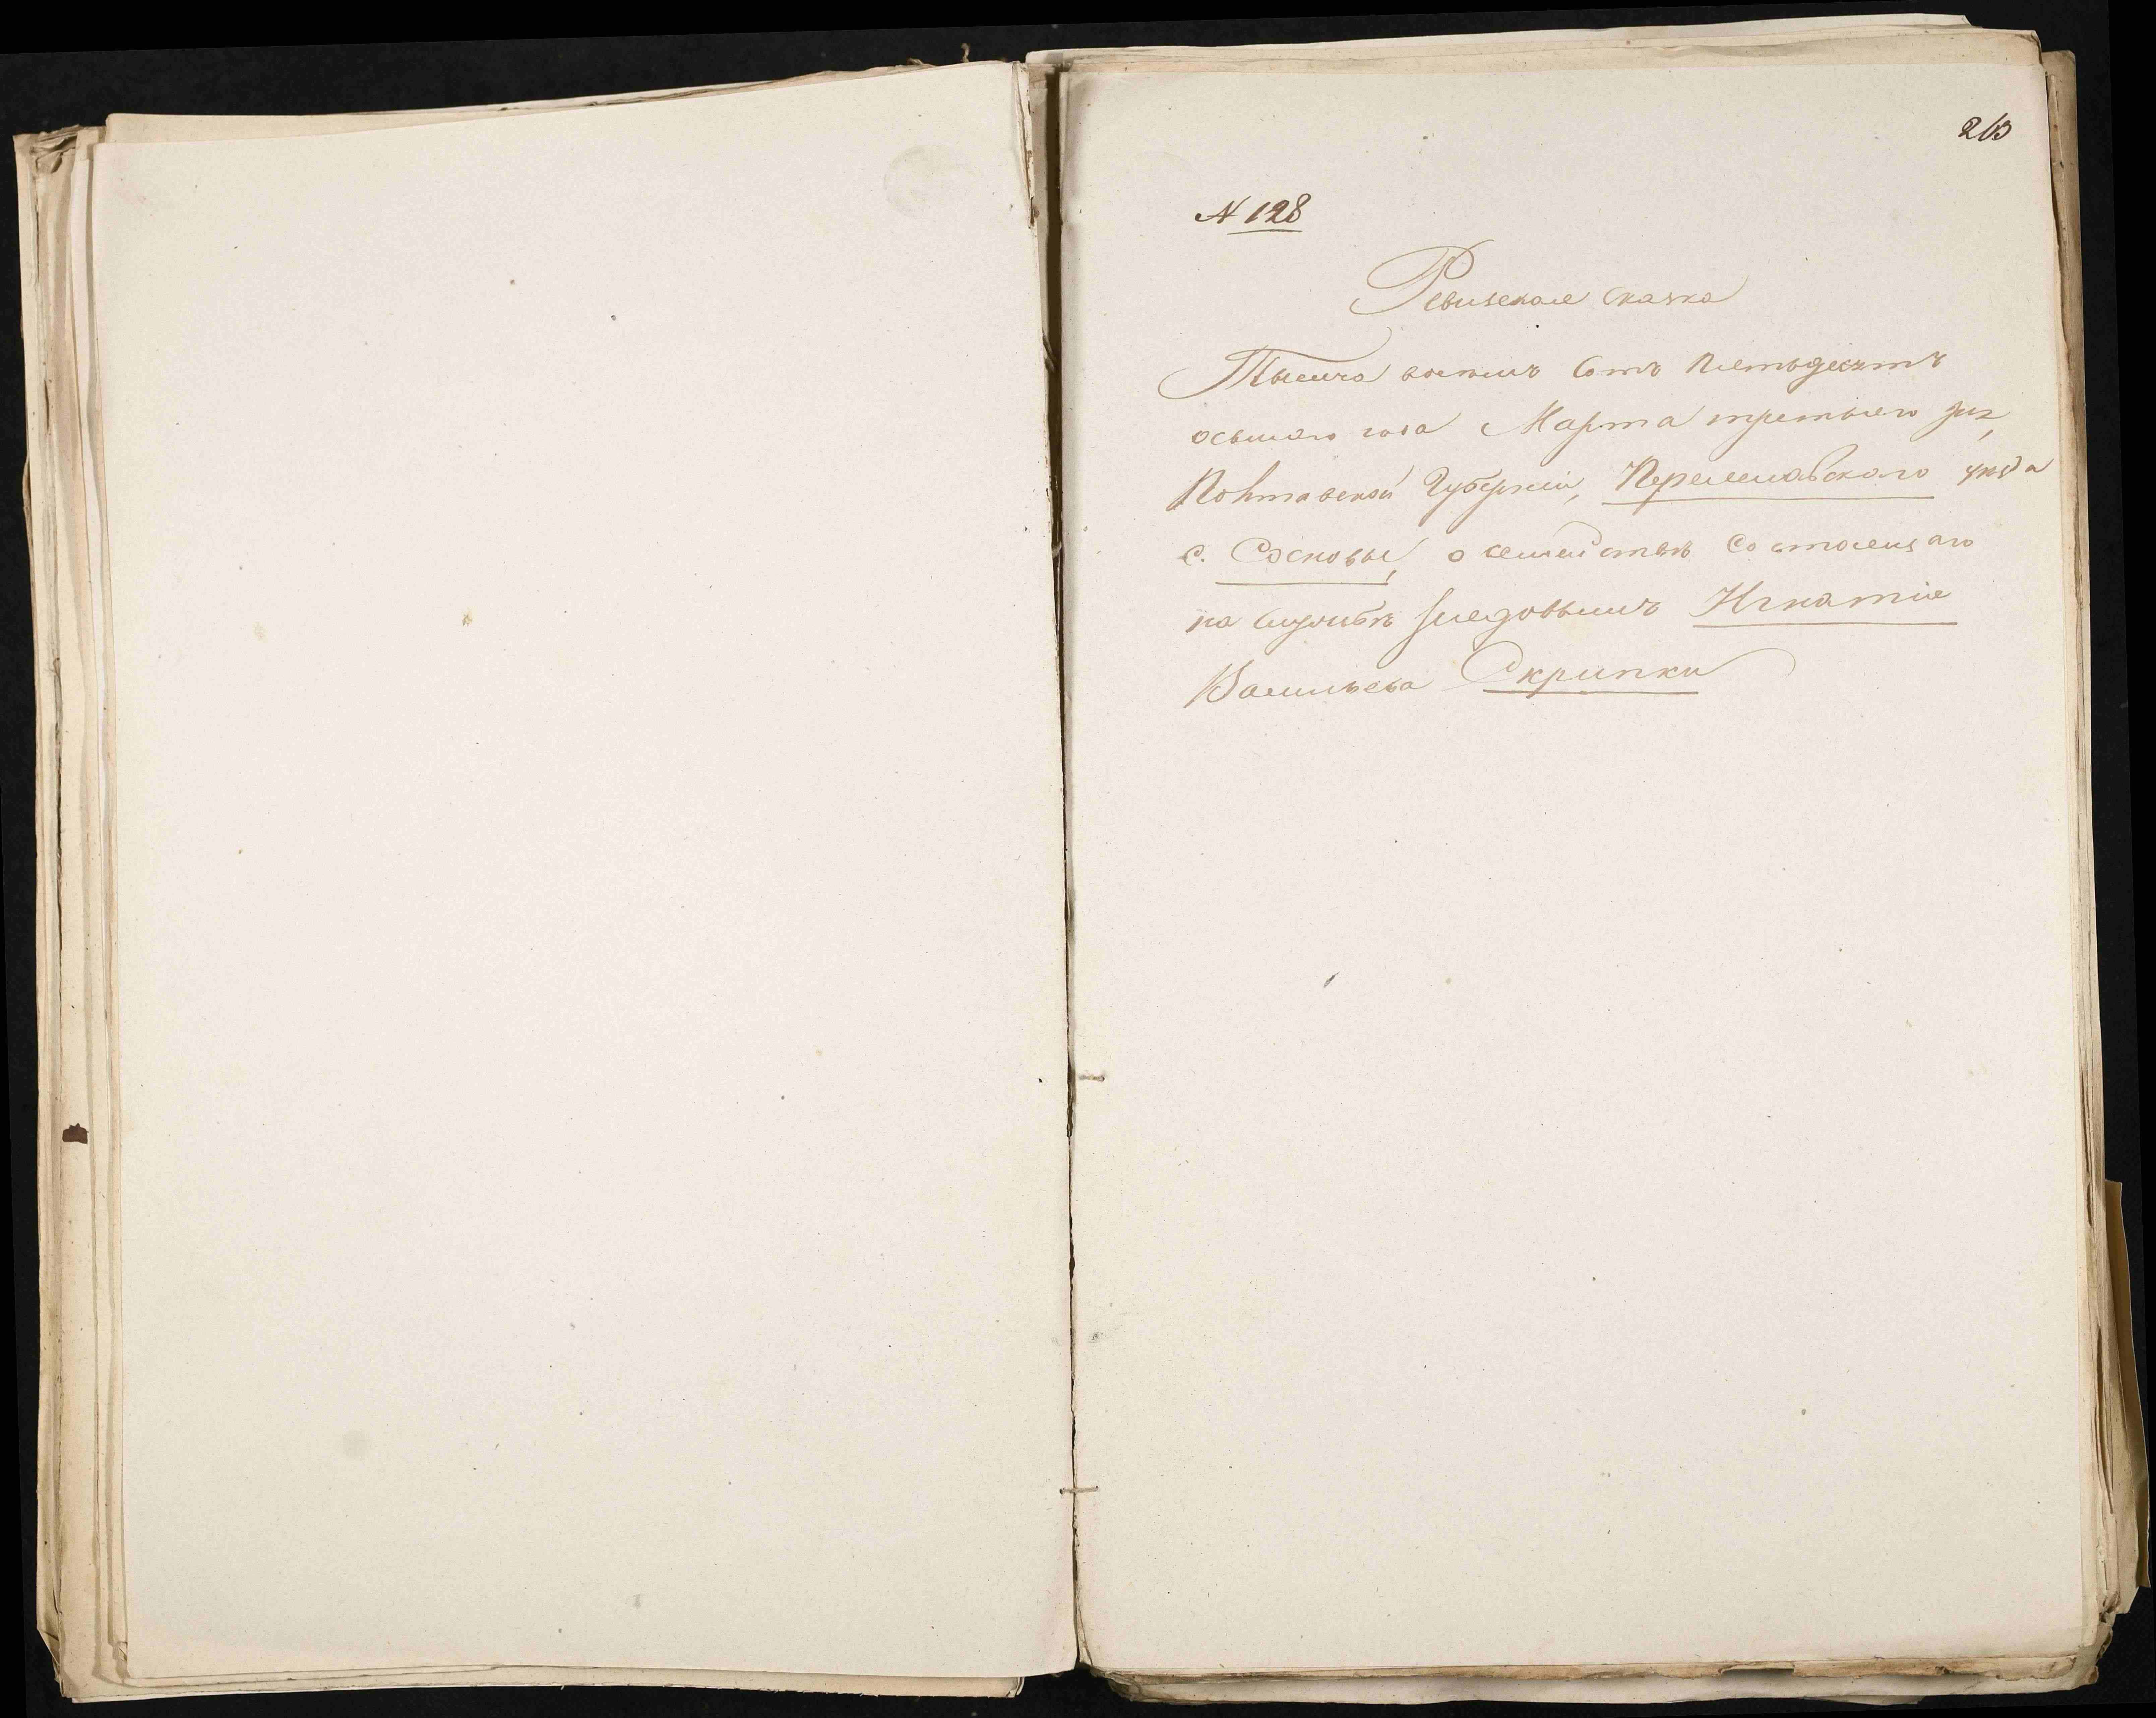 263
N 128
Ревизская сказка
Тысяча восемь Сотъ Пятьдесятъ
осьмаго года Марта третьяго дня,
Полтавской Губерніи, Переяславскаго уѣзда
с. Сосновы, о семействѣ состоящаго
на службѣ рядовымъ Игнатія
Васильева Скрипки